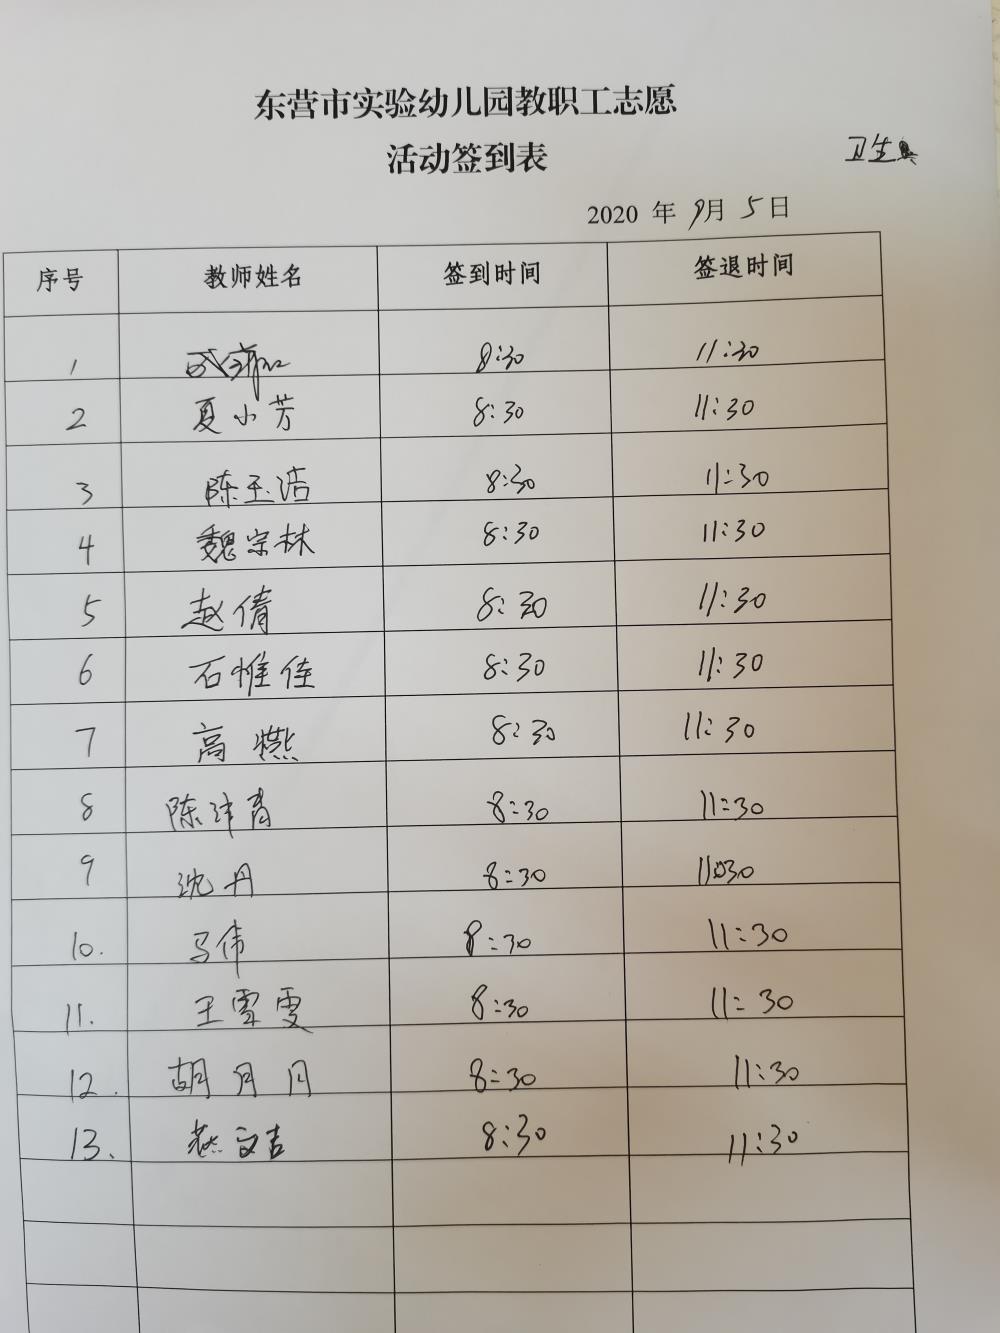 东营市实验幼儿园教职工志愿
活动签到表
卫生
2020 年 9月 5日
序号 教师姓名 签到时间 签退时间
1 8:30 11:30
2 夏小芳 8:30 11:30
3 陈玉洁 8:30 11:30
4 魏宗林 8:30 11:30
5 赵倩 8:30 11:30
6 石惟佳 8:30 11:30
7 高燃 8:30 11:30
8 陈沣青 8:30 11:30
9 沈丹 8:30 11:30
10. 马伟 8:30 11:30
11. 王雪雯 8:30 11:30
12. 胡月月 8:30 11:30
13. 8:30 11:30